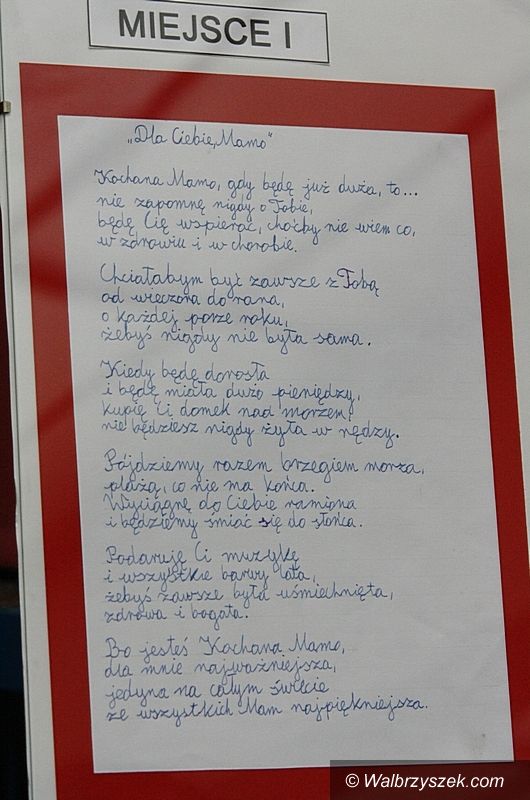 MIEJSCE I
„Dla Ciebie, Mamo"
Kochana Mamo, gdy będę już duża, to...
nie zapomnę nigdy o Tobie,
będę Cię wspierać, choćby nie wiem co,
w zdrowiu i w chorobie.
Chciałabym być zawsze z Tobą
od wieczora do rana,
o każdej porze roku,
żebyś nigdy nie była sama.
Kiedy będę dorosła
i będę miała dużo pieniędzy,
kupię Ci domek nad morzem,
nie będziesz nigdy żyła w nędzy.
Pójdziemy razem brzegiem morza,
plażą, co nie ma końca.
Wyciągnę do Ciebie ramiona
i będziemy śmiać się do słońca.
Podaruję Ci muzykę
i wszystkie barwy lata,
żebyś zawsze była uśmiechnięta,
zdrowa i bogata.
Bo jesteś Kochana Mamo,
dla mnie najważniejsza,
jedyna na całym świecie
ze wszystkich Mam najpiękniejsza.
© Walbrzyszek.com